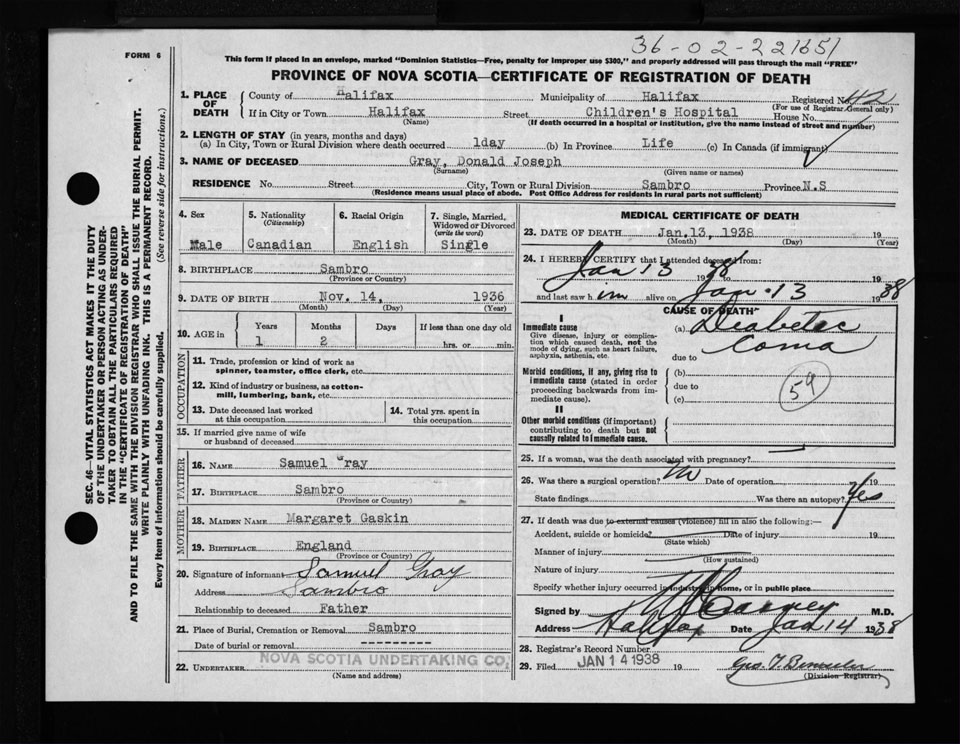 36-02-221651
FORM 6
This form if placed in an envelope, marked "Dominion Statistics—Free, penalty for improper use $300," and properly addressed will pass through the mail "FREE"
PROVINCE OF NOVA SCOTIA—CERTIFICATE OF REGISTRATION OF DEATH
1. PLACE OF DEATH
County of Halifax Municipality of Halifax Registered No. 42
(For use of Registrar General only)
If in City, Town or Halifax Street Children's Hospital House No.
(Name) (If death occurred in a hospital or institution, give the name instead of street and number)
2. LENGTH OF STAY (in years, months and days)
(a) In City, Town or Rural Division where death occurred 1day (b) In Province Life (c) In Canada (if immigrant)
3. NAME OF DECEASED Gray, Donald Joseph
(Surname) (Given name or names)
RESIDENCE No. Street City, Town or Rural Division Sambro Province N.S
(Residence means usual place of abode. Post Office Address for residents in rural parts not sufficient)
4. Sex
Male
5. Nationality
(Citizenship)
Canadian
6. Racial Origin
English
7. Single, Married, Widowed or Divorced
(write the word)
Single
8. BIRTHPLACE Sambro
(Province or Country)
9. DATE OF BIRTH Nov. 14, 1936
(Month) (Day) (Year)
10. AGE in Years Months Days If less than one day old
1 2 hrs. or min.
OCCUPATION
11. Trade, profession or kind of work as
spinner, teamster, office clerk, etc.
12. Kind of industry or business, as cotton-
mill, lumbering, bank, etc.
13. Date deceased last worked
at this occupation
14. Total yrs. spent in
this occupation
15. If married give name of wife
or husband of deceased
FATHER
16. NAME Samuel Gray
17. BIRTHPLACE Sambro
(Province or Country)
MOTHER
18. MAIDEN NAME Margaret Gaskin
19. BIRTHPLACE England
(Province or Country)
20. Signature of informant Samuel Gray
Address Sambro
Relationship to deceased Father
21. Place of Burial, Cremation or Removal Sambro
Date of burial or removal
22. UNDERTAKER NOVA SCOTIA UNDERTAKING CO.
(Name and address)
MEDICAL CERTIFICATE OF DEATH
23. DATE OF DEATH Jan,13, 1938
(Month) (Day) (Year)
24. I HEREBY CERTIFY that I attended deceased from:
Jan 13 1938 to Jan 13 1938
and last saw him alive on
CAUSE OF DEATH
I
Immediate cause
Give disease, injury or complica-
tion which caused death, not the
mode of dying, such as heart failure,
asphyxia, asthenia, etc.
(a) Diabetic
Coma
due to
Morbid conditions, if any, giving rise to
immediate cause (stated in order
proceeding backwards from im-
mediate cause).
(b)
due to
(c)
59
II
Other morbid conditions (if important)
contributing to death but not
causally related to immediate cause.
25. If a woman, was the death associated with pregnancy?
26. Was there a surgical operation? No Date of operation 19
State findings Was there an autopsy? Yes
27. If death was due to external causes (violence) fill in also the following:—
Accident, suicide or homicide? Date of injury 19
(State which)
Manner of injury
(How sustained)
Nature of injury
Specify whether injury occurred in industry, in home, or in public place
Signed by M.D.
Address Halifax Date Jan 14 1938
28. Registrar's Record Number
29. Filed JAN 14 1938 19
(Division Registrar)
SEC. 46—VITAL STATISTICS ACT MAKES IT THE DUTY
OF THE UNDERTAKER OR PERSON ACTING AS UNDER-
TAKER TO OBTAIN ALL THE PARTICULARS REQUIRED
IN THE "CERTIFICATE OF REGISTRATION OF DEATH"
AND TO FILE THE SAME WITH THE DIVISION REGISTRAR WHO SHALL ISSUE THE BURIAL PERMIT.
WRITE PLAINLY WITH UNFADING INK. THIS IS A PERMANENT RECORD.
Every item of information should be carefully supplied. (See reverse side for instructions.)